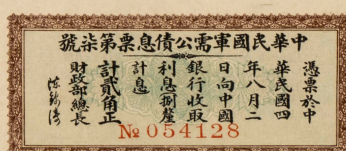 中華民國軍需公債息票第柒號
憑票於中
華民國四
年八月二
日向中國
銀行收取
利息捌釐
計息
計貳角正
財政部總長
陳錦濤
№ 054128